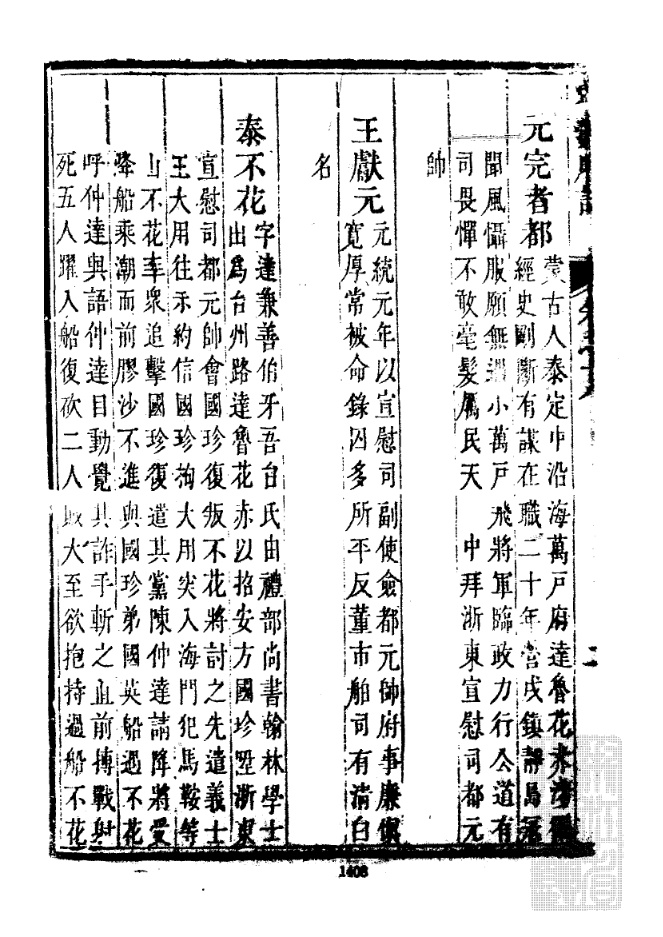 元完者都蒙古人泰定中沿海萬戸府達魯花赤涉獵
經史剛斷有謀在職二十年營戍鎮靜島寇
聞風懾服願無過小萬戸飛將軍臨政力行公道有
司畏憚不敢毫髮厲民天中拜浙東宣慰司都元
帥
王獻元元統元年以宣慰司副使僉都元帥府事廉慎
寬厚常被命錄囚多所平反董市舶司有清白
名
泰不花字達兼善伯牙吾台氏由禮部尚書翰林學士
出爲台州路達魯花赤以招安方國珍陞浙東
宣慰司都元帥會國珍復叛不花將討之先遣義士
王大用往示約信國珍拘大用突入海門犯馬鞍等
山不花率衆追擊國珍復遣其黨陳仲達請降將受
降船乘潮而前膠沙不進與國珍弟國英船遇不花
呼仲達與語仲達目動覺其詐手斬之直前搏戰射
死五人躍入船復砍二人賊大至欲抱持過船不花
1408